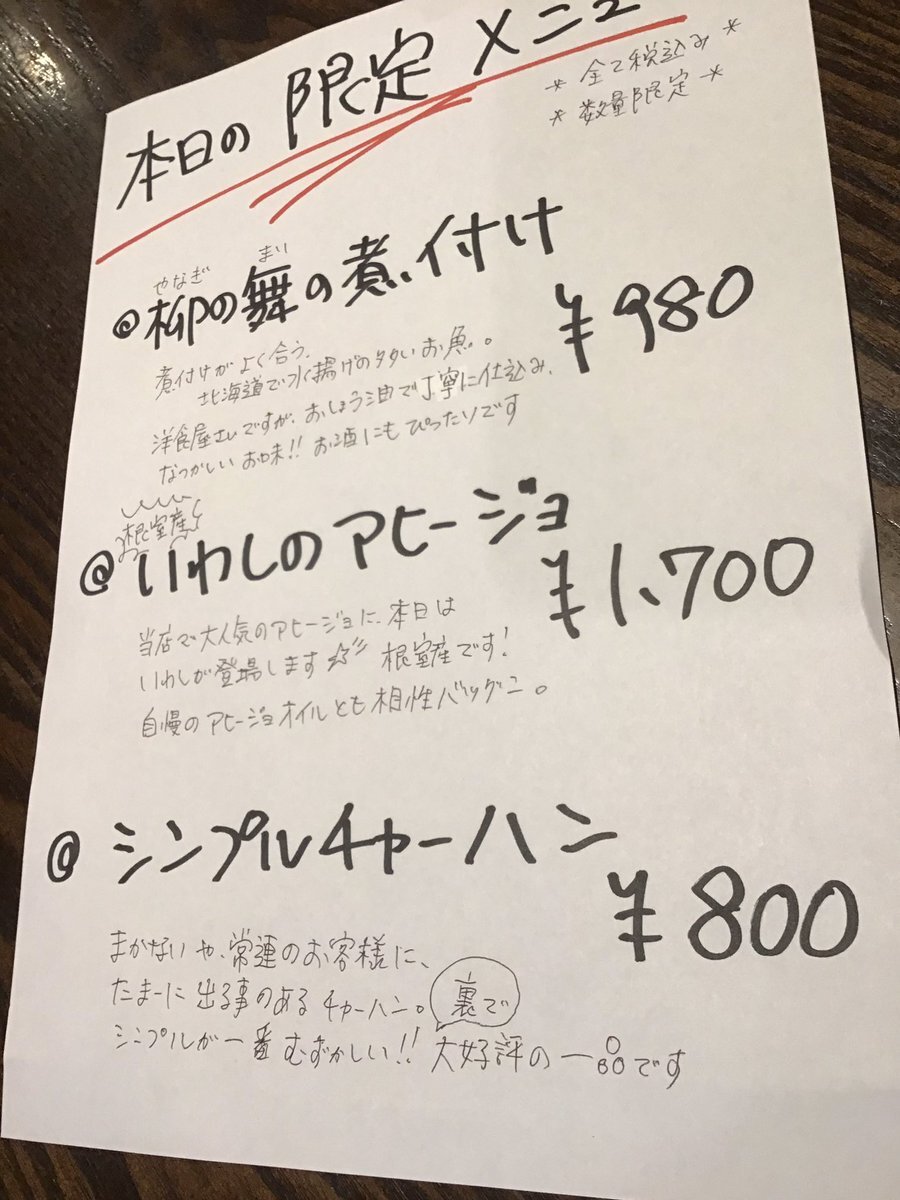 本日の 限定 メニュー
* 全て税込み *
* 数量限定 *
やなぎ まい
@柳の舞の煮付け
¥980
煮付けがよく合う、
北海道で水揚げの多いお魚。
洋食屋さんですが、おしょう油で丁寧に仕込み、
なつかしいお味!! お酒にもぴったりです
根室産
@いわしのアヒージョ
¥1,700
当店で大人気のアヒージョに、本日は
いわしが登場します☆彡 根室産です!
自慢のアヒージョオイルとも相性バツグン。
@シンプルチャーハン
¥800
まかないや、常連のお客様に、
たまーに出る事のあるチャーハン。裏で
シンプルが一番むずかしい!! 大好評の一品です